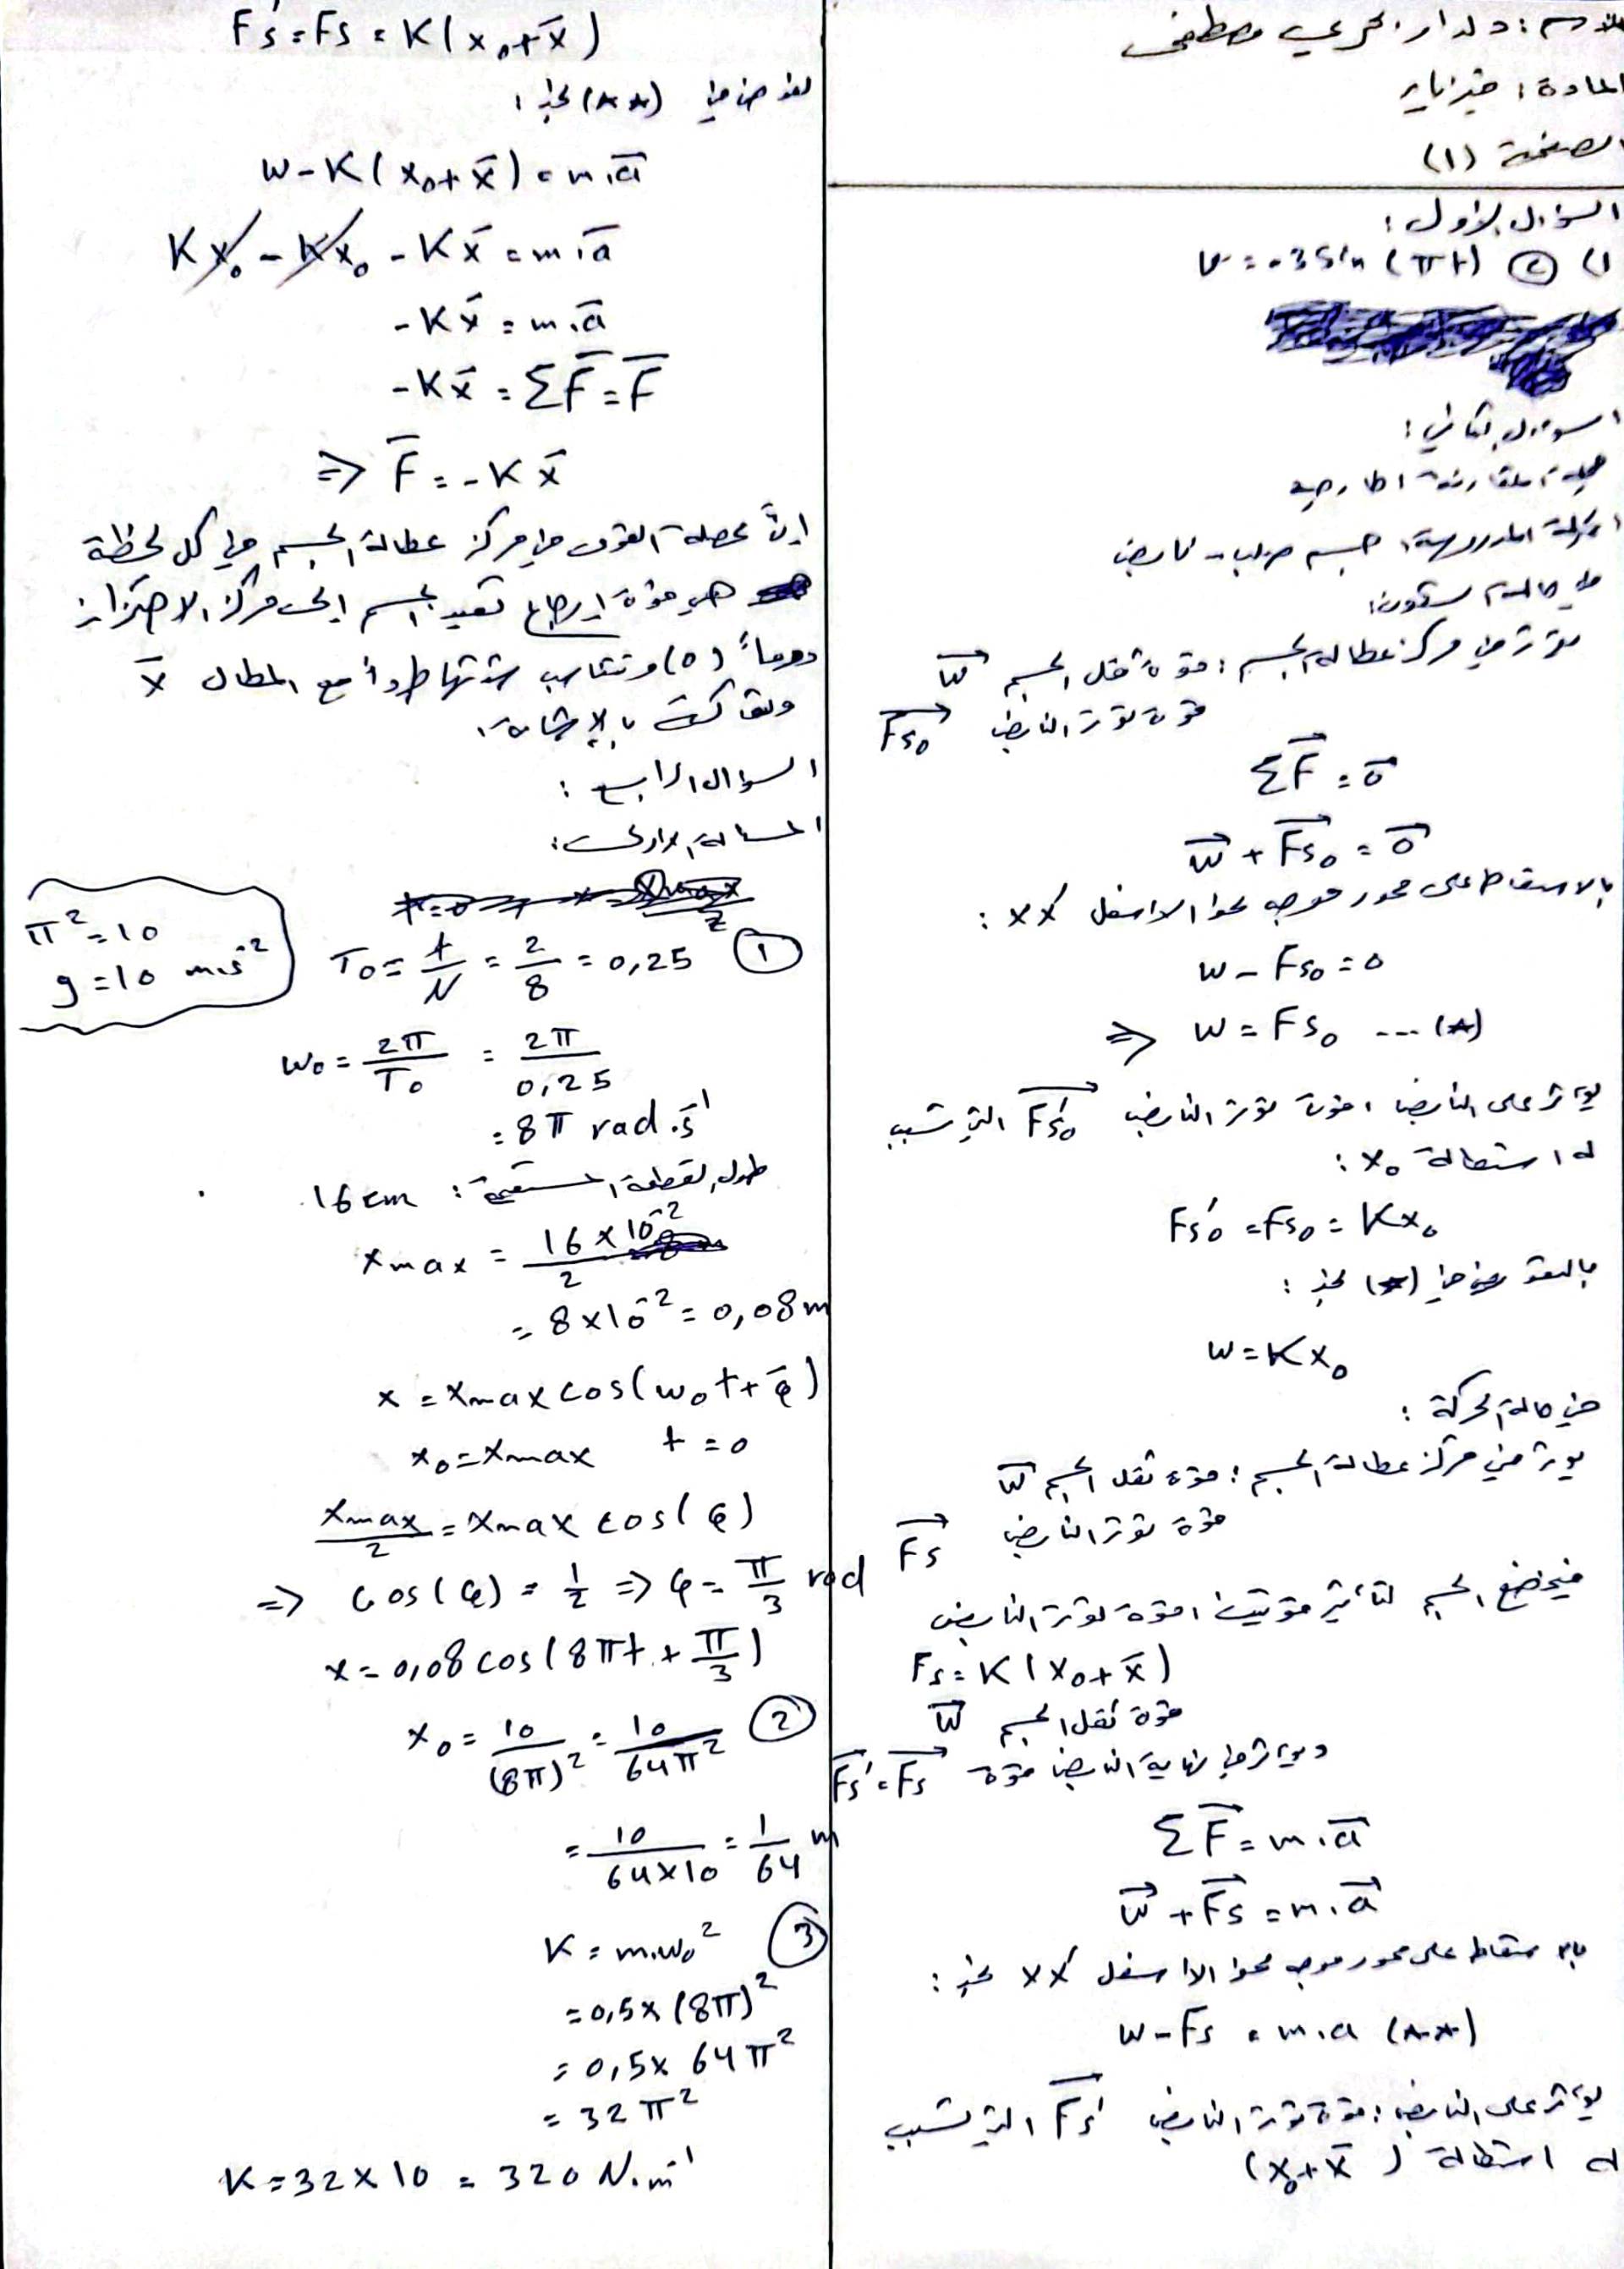 الاسم: دلدار مرعي مصطفى
المادة: فيزياء
الصفحة (1)
السؤال الأول:
(1 ⓒ v = -.3 sin (πt)
السؤال الثاني:
جملة المقارنة خارجية
الجملة المدروسة: جسم صلب - نابض
في حالة السكون:
تؤثر في مركز عطالة الجسم: قوة ثقل الجسم W⃗
قوة توتر النابض Fs₀⃗
ΣF⃗ = 0⃗
W⃗ + Fs₀⃗ = 0⃗
بالاسقاط على محور موجه نحو الاسفل x'x :
W - Fs₀ = 0
⇒ W = Fs₀ ... (*)
يؤثر على النابض: قوة توتر النابض Fs'₀⃗ التي تسبب
له استطالة x₀ :
Fs'₀ = Fs₀ = Kx₀
بالتعويض في (*) نجد :
W = Kx₀
في حالة الحركة :
يؤثر في مركز عطالة الجسم : قوة ثقل الجسم W⃗
قوة توتر النابض Fs⃗
فيخضع الجسم لتأثير قوتين: قوة توتر النابض
Fs = K(x₀ + x̄)
قوة ثقل الجسم W⃗
ويؤثر في نهاية النابض قوة Fs'⃗ = Fs⃗
ΣF⃗ = m.a⃗
W⃗ + Fs⃗ = m.a⃗
بالاسقاط على محور موجه نحو الاسفل x'x نجد :
W - Fs = m.a (**)
يؤثر على النابض: قوة توتر النابض Fs'⃗ التي تسبب
له استطالة (x₀ + x̄)
Fs' = Fs = K(x₀ + x̄)
نعوض في (**) نجد :
W - K(x₀ + x̄) = m.ā
Kx₀ - Kx₀ - Kx̄ = m.ā
-Kx̄ = m.ā
-Kx̄ = ΣF̄ = F̄
⇒ F̄ = -Kx̄
إنّ محصلة القوى في مركز عطالة الجسم في كل لحظة
هي قوة إرجاع تعيد الجسم إلى مركز الاهتزاز
دوماً (o) وتتناسب شدتها طرداً مع المطال x̄
وتعاكسه بالإشارة.
السؤال الرابع :
المسألة الأولى:
π² = 10
g = 10 m.s⁻²
① T₀ = t/N = 2/8 = 0,25
ω₀ = 2π/T₀ = 2π/0,25
= 8π rad.s⁻¹
طول القطعة المستقيمة : 16 cm
xmax = 16 × 10⁻²/2
= 8 × 10⁻² = 0,08 m
x = xmax cos(ω₀t + φ̄)
x₀ = xmax t = 0
xmax/2 = xmax cos(φ)
⇒ cos(φ) = 1/2 ⇒ φ = π/3 rad
x = 0,08 cos(8πt + π/3)
② x₀ = 10/(8π)² = 10/64π²
= 10/64×10 = 1/64 m
③ K = m.ω₀²
= 0,5 × (8π)²
= 0,5 × 64π²
= 32π²
K = 32 × 10 = 320 N.m⁻¹